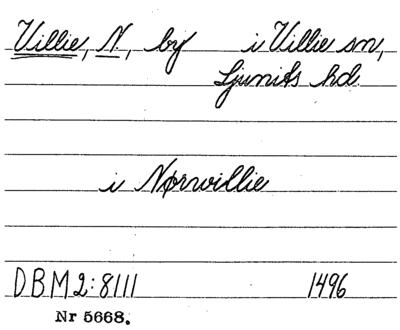 Villie, N., by i Villie sn,
Ljunits hd.
i Nørwillie
DBM2:8111 1496
Nr 5668.